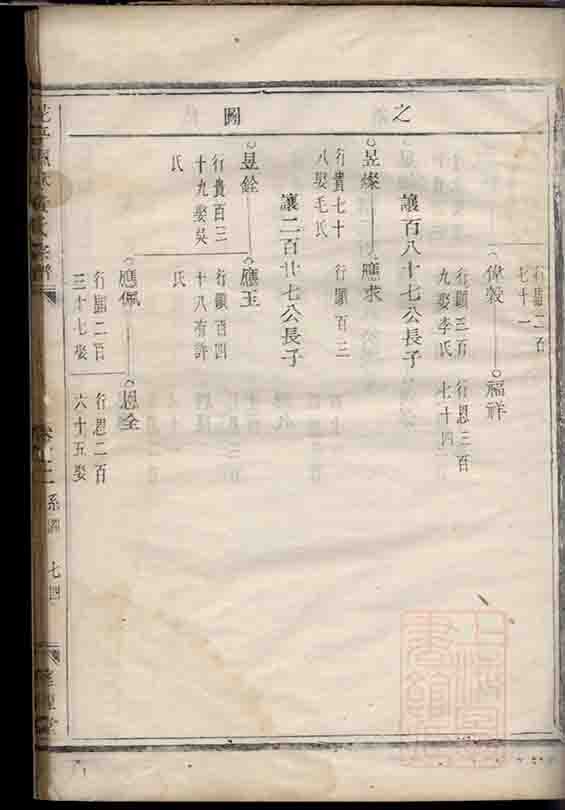 之 圖
行顯二百
七十一
偉毅
福祥
行顯三百
九娶李氏
行恩三百
七十四
讓百八十七公長子
昱燦
應求
行貴七十
八娶毛氏
行顯百三
讓二百廿七公長子
昱銓
應玉
行貴百三
十九娶吳
氏
行顯百四
十八有許
氏
應佩
恩全
行顯二百
三十七娶
行恩二百
六十五娶
系圖
七四
上海圖
書館